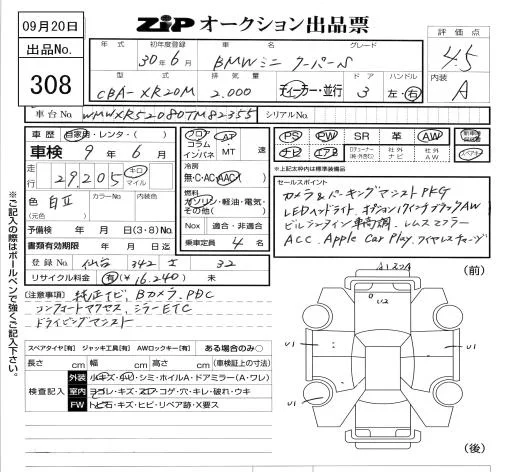 09月20日
ZiP オークション出品票
出品No.
308
年式 初年度登録 車名 グレード
30年6月 BMWミニ クーパーS
型式 排気量 ドア ハンドル
CBA-XR20M 2.000 ディーラー・並行 3 左・右
評価点
4.5
内装
A
車台No. WMWXR52080TM82355 シリアルNo.
車歴 自家用・レンタ・( )
車検 9年6月
走行 29,205 キロ マイル
色 白Ⅱ カラーNo. 内装色
(元色)
予備検 年 月 日(3・8)No.
書類有効期限 年 月 日迄
登録No. 仙台 342 32
リサイクル料金 有(¥16,240) 未
フロア
コラム
インパネ
AT
・
MT
速
冷房
無・C・AC・AAC
燃料
ガソリン・軽油・電気・
その他( )
Nox 適合・非適合
乗車定員 4名
PS PW SR 革 AW
ナビ エアB Dチューナー(純・外部) 社外ナビ 社外AW
*上記太枠内は標準装備品
セールスポイント
カメラ&パーキングアシストPKG
LEDヘッドライト、オプション17インチブラックAW
ACC、Apple Car Play、ワイヤレスチャージ
[注意事項] 純正ナビ、Bカメラ、PDC
コンフォートアクセス、ミラーETC
ドライビングアシスト
スペアタイヤ[有] ジャッキ工具[有] AWロックキー[有] ある場合のみ○
長さ cm 幅 cm 高さ cm (車検証上の寸法)
検査記入
外装 小キズ・小凹・シミ・ホイルA・ドアミラー(A・ワレ)
室内 ヨゴレ・キズ・スレ・コゲ・穴・キレ・破れ・ウキ
FW トビ石・キズ・ヒビ・リペア跡・X要ス
※ご記入の際はボールペンで強くご記入下さい。
(前)
U2
U1
U1
(後)